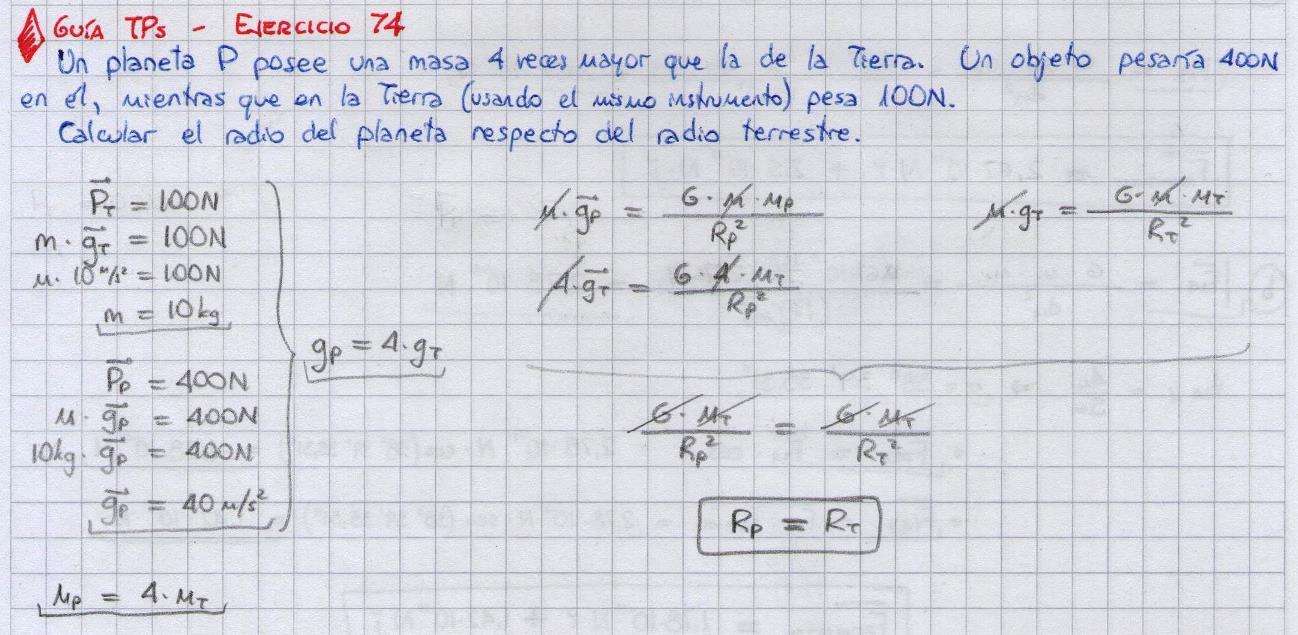 GUÍA TPs - EJERCICIO 74
Un planeta P posee una masa 4 veces mayor que la de la Tierra. Un objeto pesaría 400N
en él, mientras que en la Tierra (usando el mismo instrumento) pesa 100N.
Calcular el radio del planeta respecto del radio terrestre.
P⃗_T = 100N
m · g⃗_T = 100N
m · 10 m/s² = 100N
m = 10kg
P⃗_P = 400N
m · g⃗_P = 400N
10kg · g⃗_P = 400N
g⃗_P = 40 m/s²
M_P = 4 · M_T
g_P = 4 · g_T
m · g⃗_P = G · m · M_P / R_P²
4 · g⃗_T = G · 4 · M_T / R_P²
m · g_T = G · m · M_T / R_T²
G · M_T / R_P² = G · M_T / R_T²
R_P = R_T